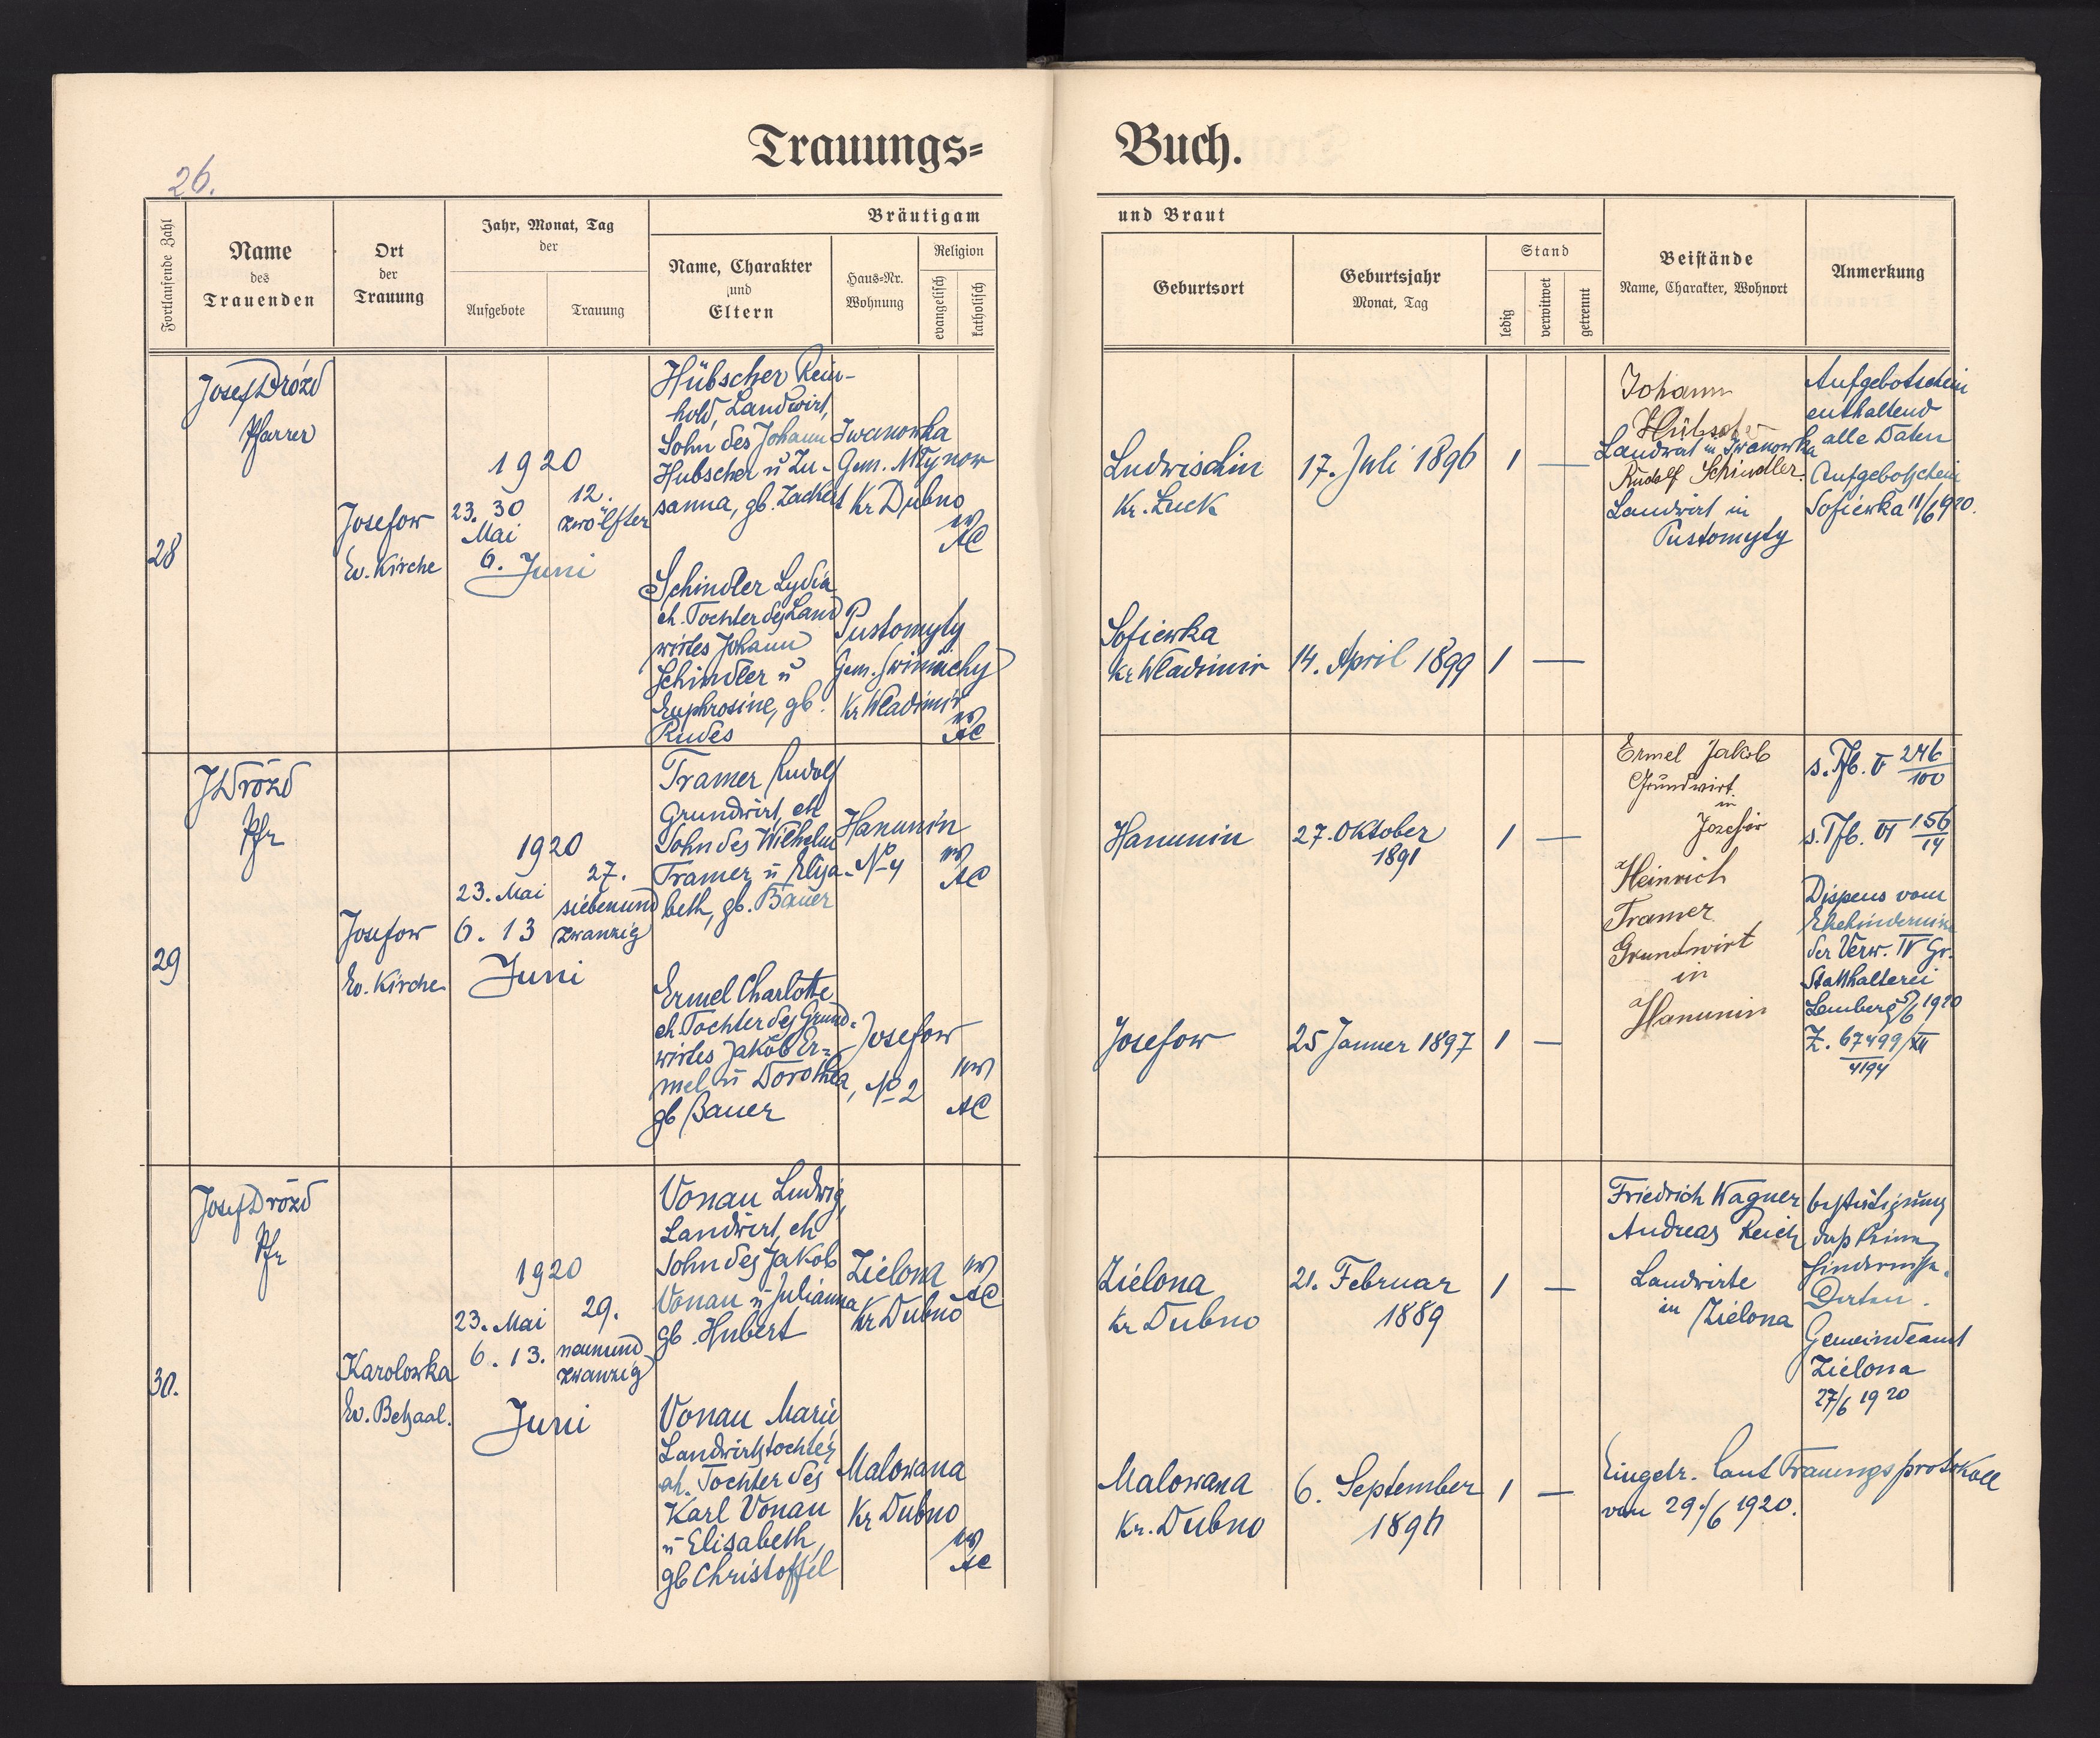 26.
Trauungs=
Buch.
Fortlaufende Zahl
Name
des
Trauenden
Ort
der
Trauung
Jahr, Monat, Tag
der
Aufgebote
Trauung
Bräutigam
Name, Charakter
und
Eltern
Haus=Nr.
Wohnung
Religion
evangelisch
katholisch
und Braut
Geburtsort
Geburtsjahr
Monat, Tag
Stand
ledig
verwitwet
getrennt
Beistände
Name, Charakter, Wohnort
Anmerkung
28
Josef Drózd
Pfarrer
Josefow
Ev. Kirche
1920
23. 30
Mai
6. Juni
12.
zwölfter
Hübscher Rein-
hold, Landwirt,
Sohn des Johann
Hübscher u Zu-
sanna, gb. Zachert
Iwanowka
Gem. Młynow
Kr Dubno
AC
Ludwischin
Kr. Łuck
17. Juli 1896
1
—
Johann
Hübscher
Landwirt in Iwanowka
Rudolf Schindler
Landwirt in
Pustomyty
Aufgebotschein
enthaltend
alle Daten
Aufgebotschein
Sofiewka 11/6 1920.
Schindler Lydia
eh. Tochter des Land
wirtes Johann
Schindler u
Euphrosine, gb.
Rudes
Pustomyty
Gem. Swiniuchy
Kr Wladimir
AC
Sofiewka
Kr Wladimir
14. April 1899
1
—
29
J Drózd
Pfr
Josefow
Ev. Kirche
1920
23. Mai
6. 13
Juni
27.
siebenund
zwanzig
Tramer Rudolf
Grundwirt, eh
Sohn des Wilhelm
Tramer u Elisa-
beth, gb. Bauer
Hanunin
No 4
AC
Hanunin
27. Oktober
1891
1
—
Ermel Jakob
Grundwirt
in
Josefow
Heinrich
Tramer
Grundwirt
in
Hanunin
s. Tfb. V 246/100
s. Tfb. VI 156/14
Dispens vom
Ehehindernisse
der Verw. IV Gr.
Statthalterei
Lemberg 5/6 1920
Z. 67499/XII
4194
Ermel Charlotte
eh. Tochter des Grund-
wirtes Jakob Er=
mel u Dorothea,
gb Bauer
Josefow
No 2
AC
Josefow
25 Janner 1897
1
—
30.
Josef Drózd
Pfr
Karolowka
Ev. Betsaal.
1920
23. Mai
6. 13.
Juni
29.
neunund
zwanzig
Vonau Ludwig,
Landwirt, eh
Sohn des Jakob
Vonau u Julianna
gb. Hubert
Zielona
Kr Dubno
AC
Zielona
Kr Dubno
21. Februar
1889
1
—
Friedrich Wagner
Andreas Reich
Landwirte
in Zielona
Bestätigung
daß keine
Hindernisse
Gemeindeamt
Zielona
27/6 1920
Vonau Marie
Landwirtstochter
eh. Tochter des
Karl Vonau
u Elisabeth,
gb Christoffel
Malowana
Kr Dubno
AC
Malowana
Kr. Dubno
6. September
1896
1
—
Eingetr. laut Trauungsprotokoll
vom 29/6 1920.